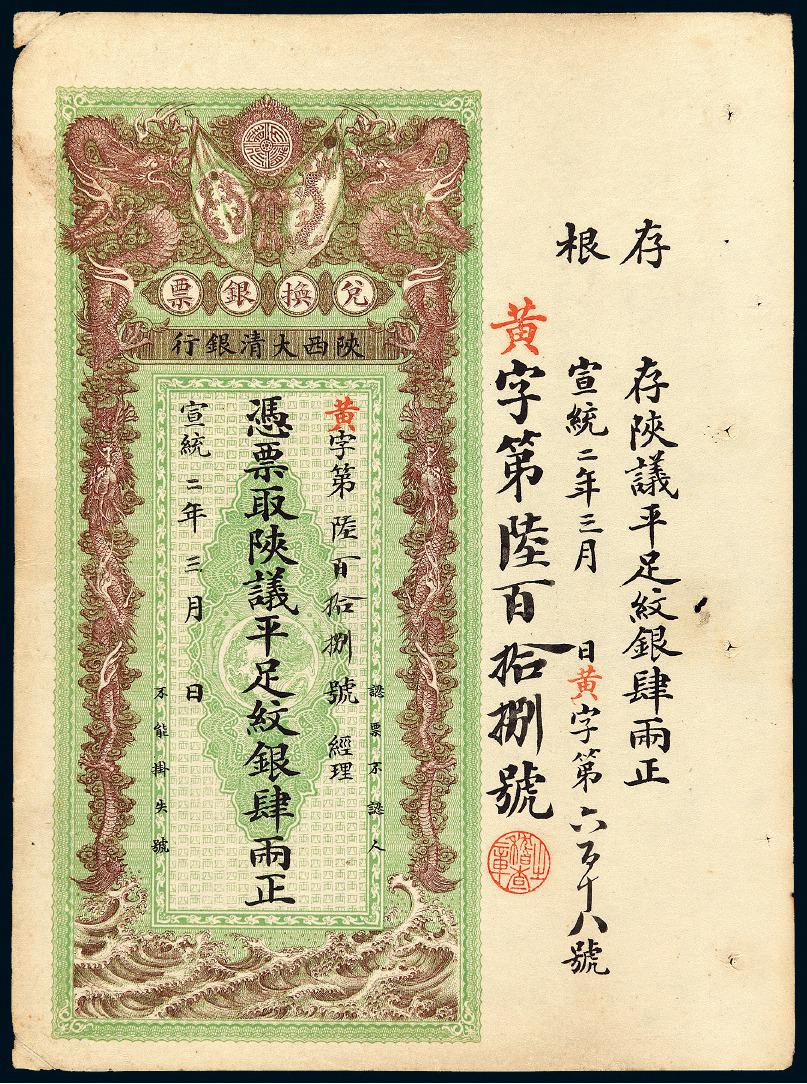 存根
存陝議平足紋銀肆兩正
宣統二年三月 日黃字第六百十八號
黃字第陸百拾捌號
稽查之章
兌換銀票
陝西大清銀行
認票不認人
黃字第陸百拾捌號 經理
憑票取陝議平足紋銀肆兩正
宣統二年三月 日
不能掛失號